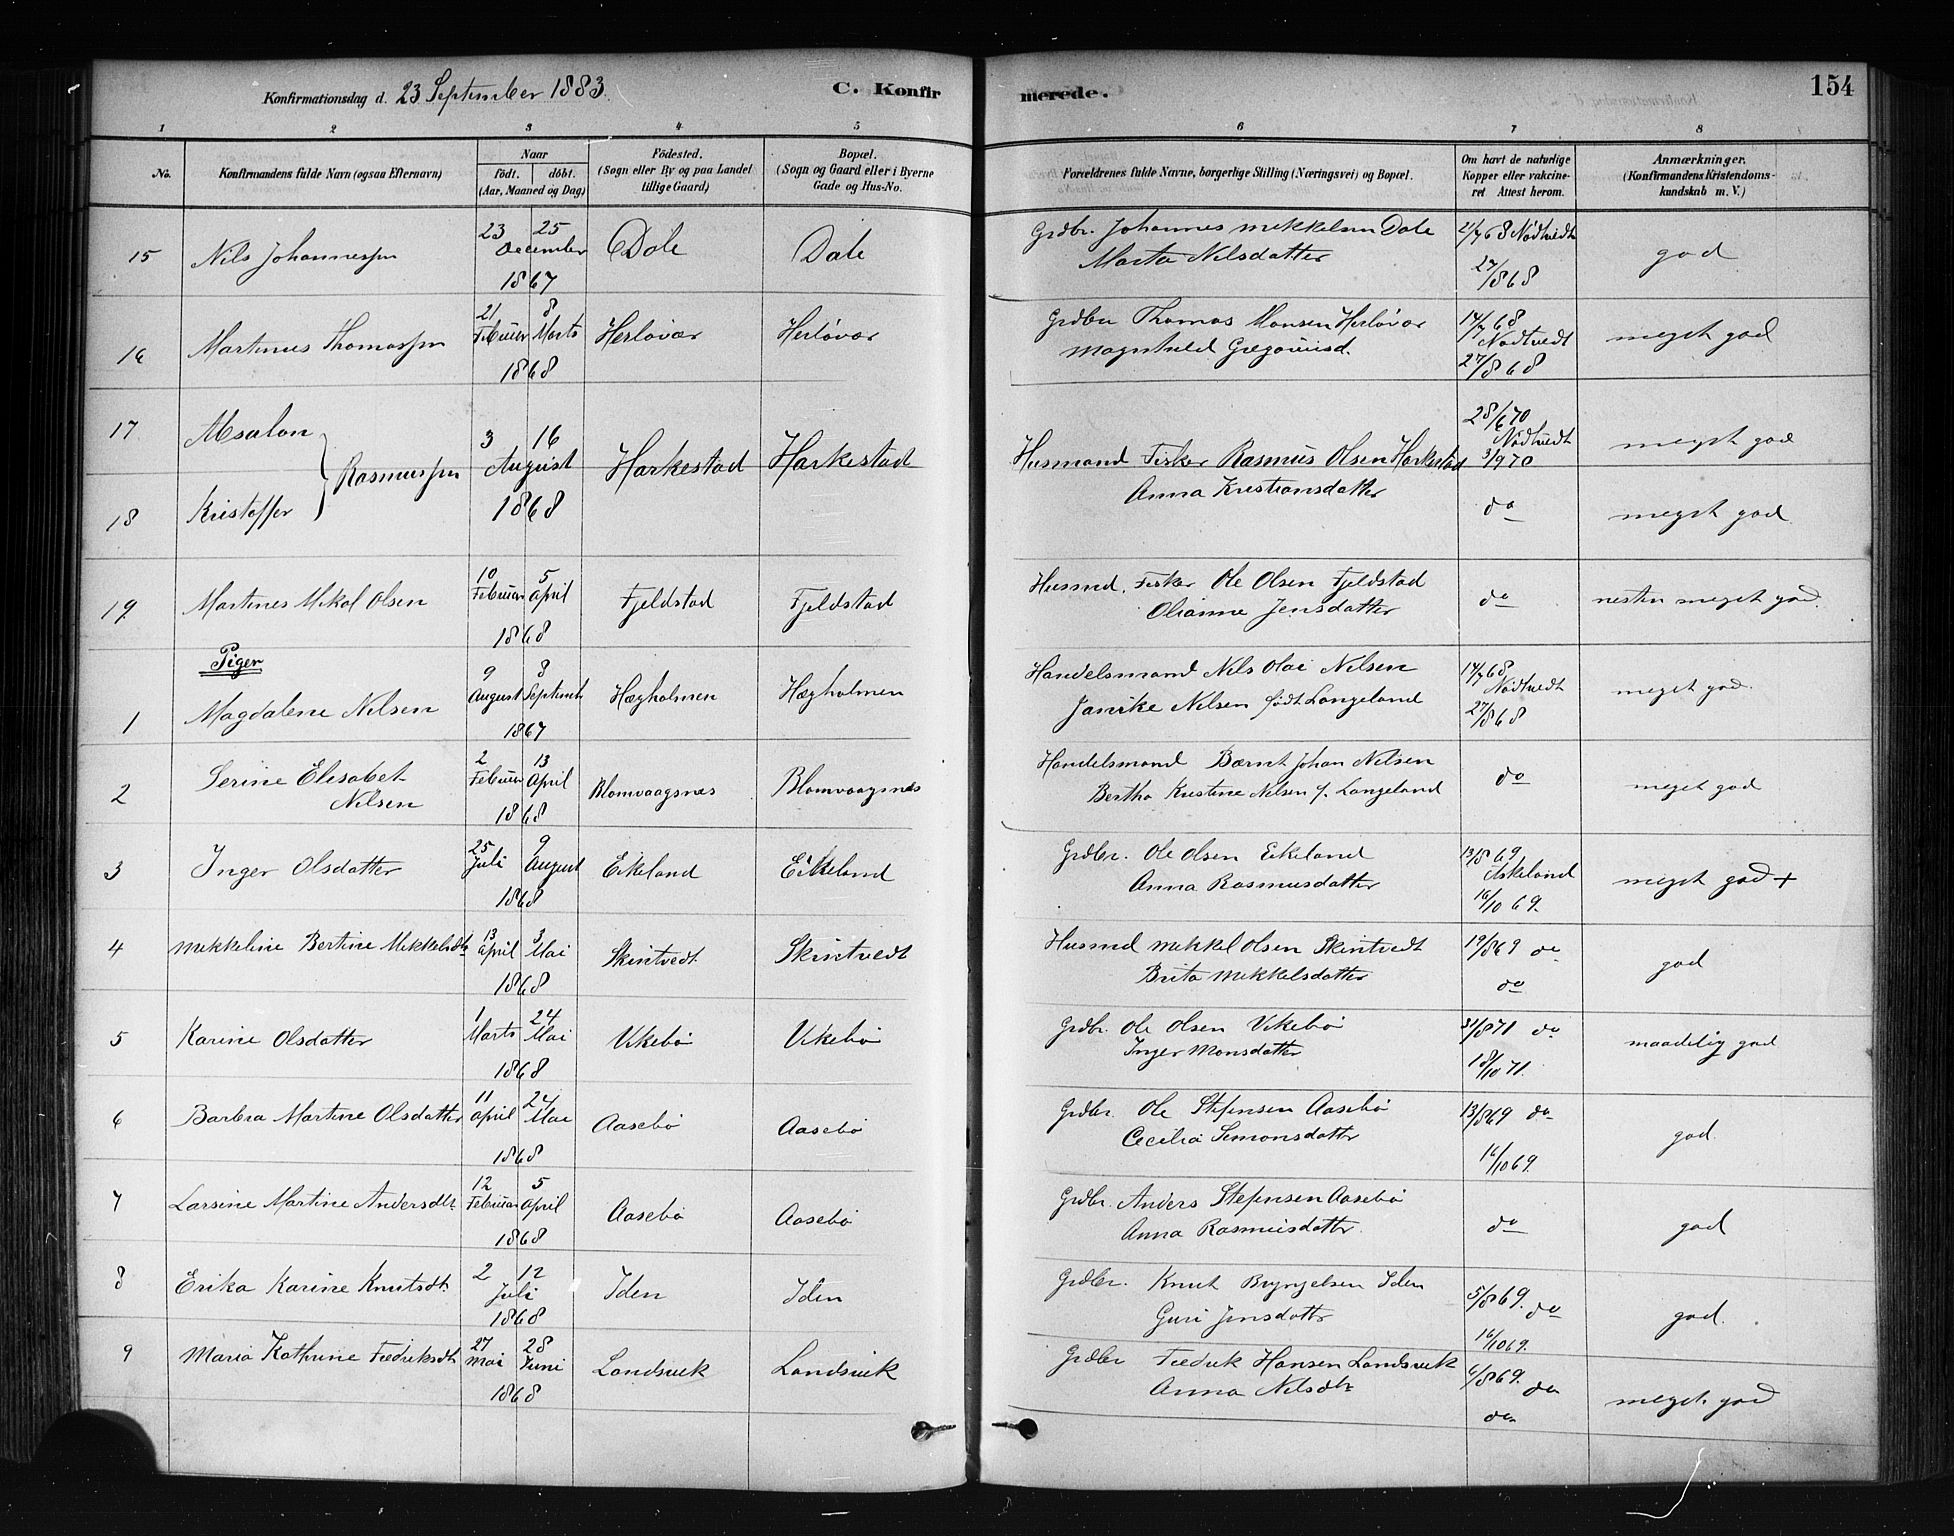 Konfirmationsdag d. 23 September 1883.
C. Konfirmerede.
154
1 2 3 4 5 6 7 8
No.
Konfirmandens fulde Navn (ogsaa Efternavn)
Naar
födt. döbt.
(Aar, Maaned og Dag)
Födested.
(Sogn eller By og paa Landet
tillige Gaard)
Bopæl.
(Sogn og Gaard eller i Byerne
Gade og Hus-No.
Forældrenes fulde Navne, borgerlige Stilling (Næringsvei) og Bopæl.
Om havt de naturlige
Kopper eller vakcine-
ret Attest herom.
Anmærkninger.
(Konfirmandens Kristendoms-
kundskab m. V.)
15 Nils Johannessen 23 25 December 1867 Dale Dale
Grdbr. Johannes Mikkelsen Dale
Marta Nilsdatter
21/7 68 Nödtvedt
27/8 68
god
16 Martinus Thomassen 21 Februar 8 Marts 1868 Herlövær Herlövær
Grdbr Thomas Monsen Herlövær
Magnhild Gregoriusd.
14/7 68
Nödtvedt
27/8 68
meget god
17 Absalon
18 Kristoffer
Rasmussen 3 16 August 1868 Harkestad Harkestad
Husmand Fisker Rasmus Olsen Harkestad
Anna Kristiansdatter
28/6 70
Nödtvedt
3/9 70
meget god
do
meget god
19. Martines Mikal Olsen 10 Februar 5 April 1868 Fjeldstad Fjeldstad
Husmd. Fisker Ole Olsen Fjeldstad
Olianne Jensdatter
do
nesten meget god.
Piger
1 Magdalene Nilsen 9 August 8 Septembr 1867 Hægholmen Hægholmen
Handelsmand Nils Olai Nilsen
Janike Nilsen födt Langeland
14/7 68
Nödtvedt
27/8 68
meget god.
2 Serine Elisabet
Nilsen 2 Februar 13 April 1868 Blomvaagsnes Blomvaagsnes
Handelsmand Bærnt Johan Nilsen
Bertha Kristine Nilsen f. Langeland
do
meget god
3 Inger Olsdatter 25 Juli 9 August 1868 Eikeland Eikeland
Grdbr. Ole Olsen Eikeland
Anna Rasmusdatter
13/8 69
Askeland
16/10 69.
meget god +
4 Mikkeline Bertine Mikkelsdtr 13 April 3 Mai 1868 Skintvedt Skintvedt
Husmd Mikkel Olsen Skintvedt
Brita Mikkelsdatter
19/8 69 do
do
god
5 Karine Olsdatter 1 Marts 24 Mai 1868 Vikebö Vikebö
Grdbr. Ole Olsen Vikebö
Inger Monsdatter
31/8 71 do
18/10 71.
maadelig god
6 Barbra Martine Olsdatter 11 April 24 Mai 1868 Aasebö Aasebö
Grdbr. Ole Stefensen Aasebö
Cecilia Simonsdattr
13/8 69 do
16/10 69.
god.
7 Larsine Martine Andersdtr 12 Februar 5 April 1868 Aasebö Aasebö
Grdbr. Anders Stefensen Aasebö
Anna Rasmusdatter
do
god
8 Erika Karine Knutsdtr 2 12 Juli 1868 Iden Iden
Grdbr. Knut Brynjelsen Iden
Guri Jensdatter
5/8 69. do
16/10 69.
god.
9 Maria Kathrine Fredriksdtr 27 Mai 28 Juni 1868 Landsvik Landsvik
Grdbr Fredrik Hansen Landsvik
Anna Nilsdtr
6/8 69. do
do
meget god